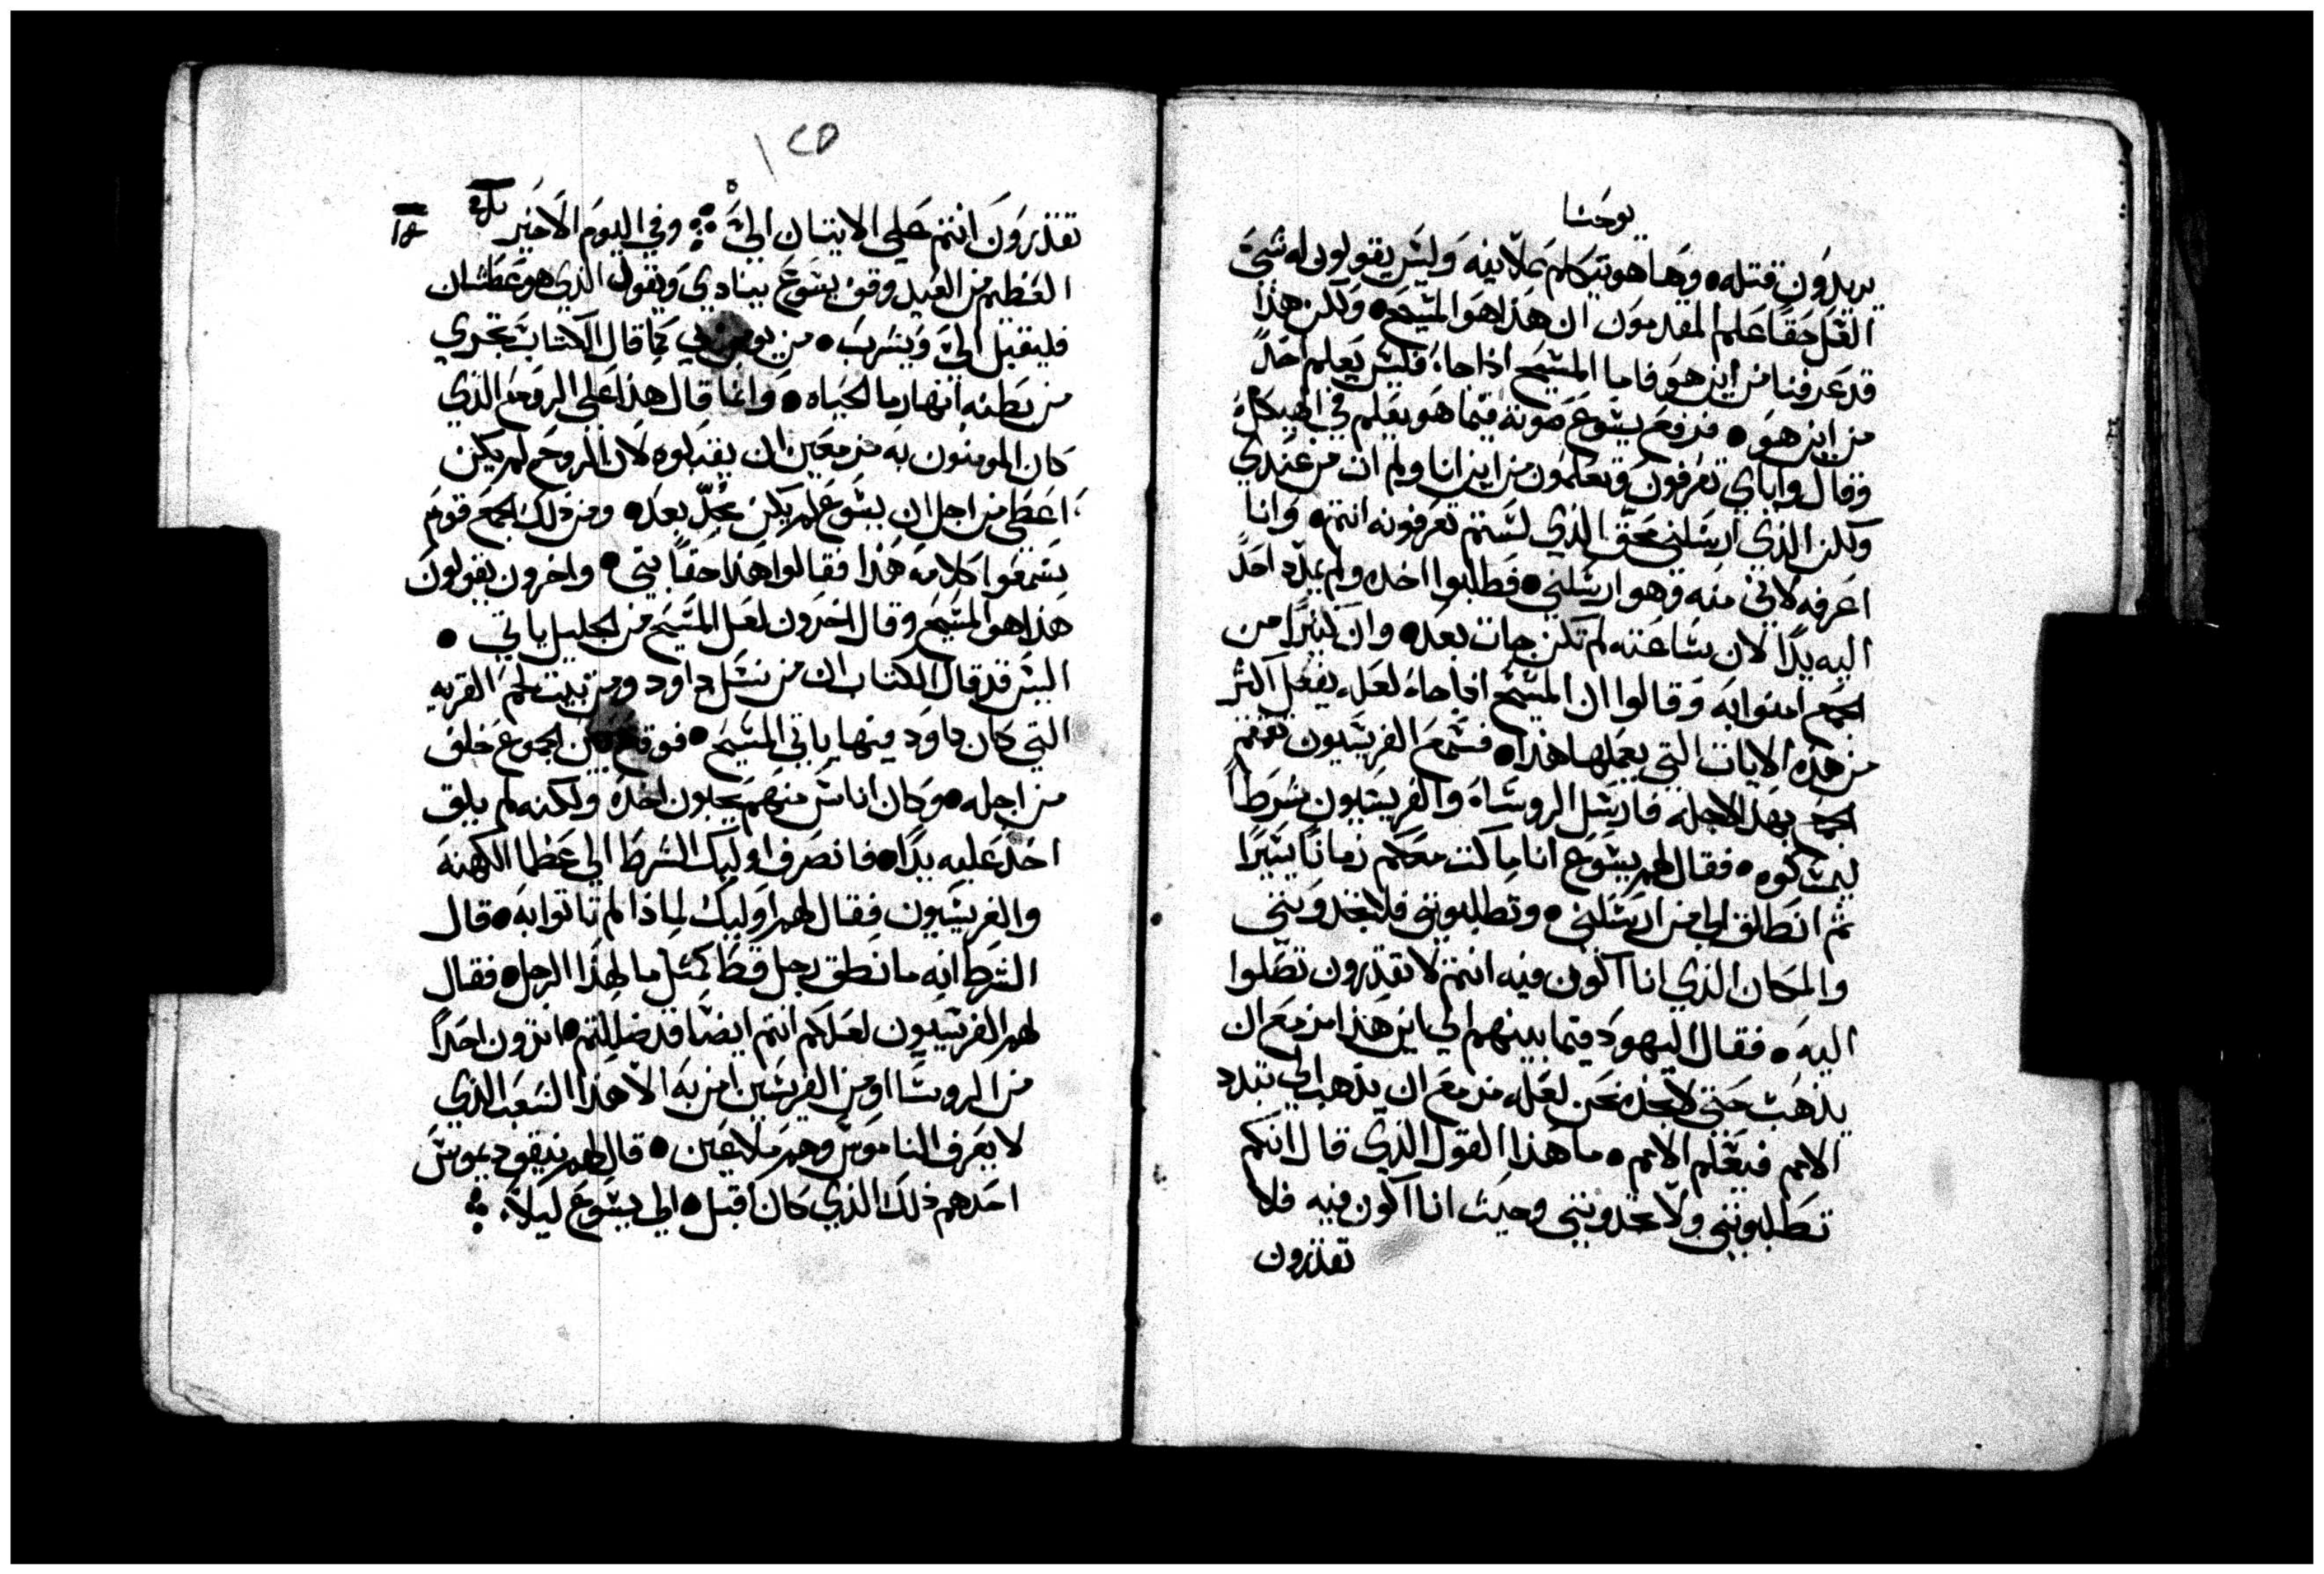 يوحنا
يريدون قتله وها هو يتكلم علانيه وليس يقولون له شي
العل حقا علم المقدمون ان هذا هو المسيح ولكن هذا
قد عرفنا من اين هو فاما المسيح اذا جا فليس يعلم احد
من اين هو فرفع يسوع صوته فيما هو يعلم في الهيكل
وقال واياي تعرفون وتعلمون من اين انا ولم ات من عندي
ولكن الذي ارسلني محق الذي لستم تعرفونه انتم وانا
اعرفه لاني منه وهو ارسلني فطلبوا اخده ولم يمد احد
اليه يدا لان ساعته لم تكن جات بعد وان كثيرا من
الجمع امنوا به وقالوا ان المسيح اذا جا لعله يفعل اكثر
من هذه الايات التي يعملها هذا فسمع الفريسيون تقمقم
الجمع بهذا لاجله فارسل الروسا والفريسيون شرطا
ليمسكوه فقال لهم يسوع انا ماكث معكم زمانا يسيرا
ثم انطلق الي من ارسلني وتطلبونني فلا تجدونني
والمكان الذي انا اكون فيه انتم لا تقدرون تصلوا
اليه فقال اليهود فيما بينهم الي اين هذا مزمع ان
يذهب حتي لا نجده نحن لعله مزمع ان يذهب الي تبدد
الامم فيعلم الامم ما هذا القول الذي قال انكم
تطلبونني ولا تجدونني وحيث انا اكون فيه فلا
تقدرون
١٢٥
تقدرون انتم علي الاتيان الي وفي اليوم الاخير
العظيم من العيد وقف يسوع ينادي ويقول الذي هو عطشان
فليقبل الي ويشرب من يومن بي كما قال الكتاب تجري
من بطنه انهار ما الحياه وانما قال هذا علي الروح الذي
كان المومنون به مزمعين ان يقبلوه لان الروح لم يكن
اعطي من اجل ان يسوع لم يكن مجد بعد ومن ذلك الجمع قوم
سمعوا كلامه هذا فقالوا هذا حقا نبي واخرون يقولون
هذا هو المسيح وقال اخرون لعل المسيح من الجليل ياتي
اليس قد قال الكتاب ان من نسل داود ومن بيت لحم القريه
التي كان داود فيها ياتي المسيح فوقع بين الجموع خلف
من اجله وكان اناس منهم يحبون اخده ولكنه لم يلق
احد عليه يدا فانصرف اوليك الشرط الي عظما الكهنه
والفريسيون فقال لهم اوليك لماذا لم تاتوا به قال
الشرط انه ما نطق رجل قط كمثل ما لهذا الرجل فقال
لهم الفريسيون لعلكم انتم ايضا قد ضللتم اترون احدا
من الروسا او من الفريسين امن به الا هذا الشعب الذي
لا يعرف الناموس وهم ملاعين قال لهم نيقوديموس
احدهم ذلك الذي كان اقبل الي يسوع ليلا